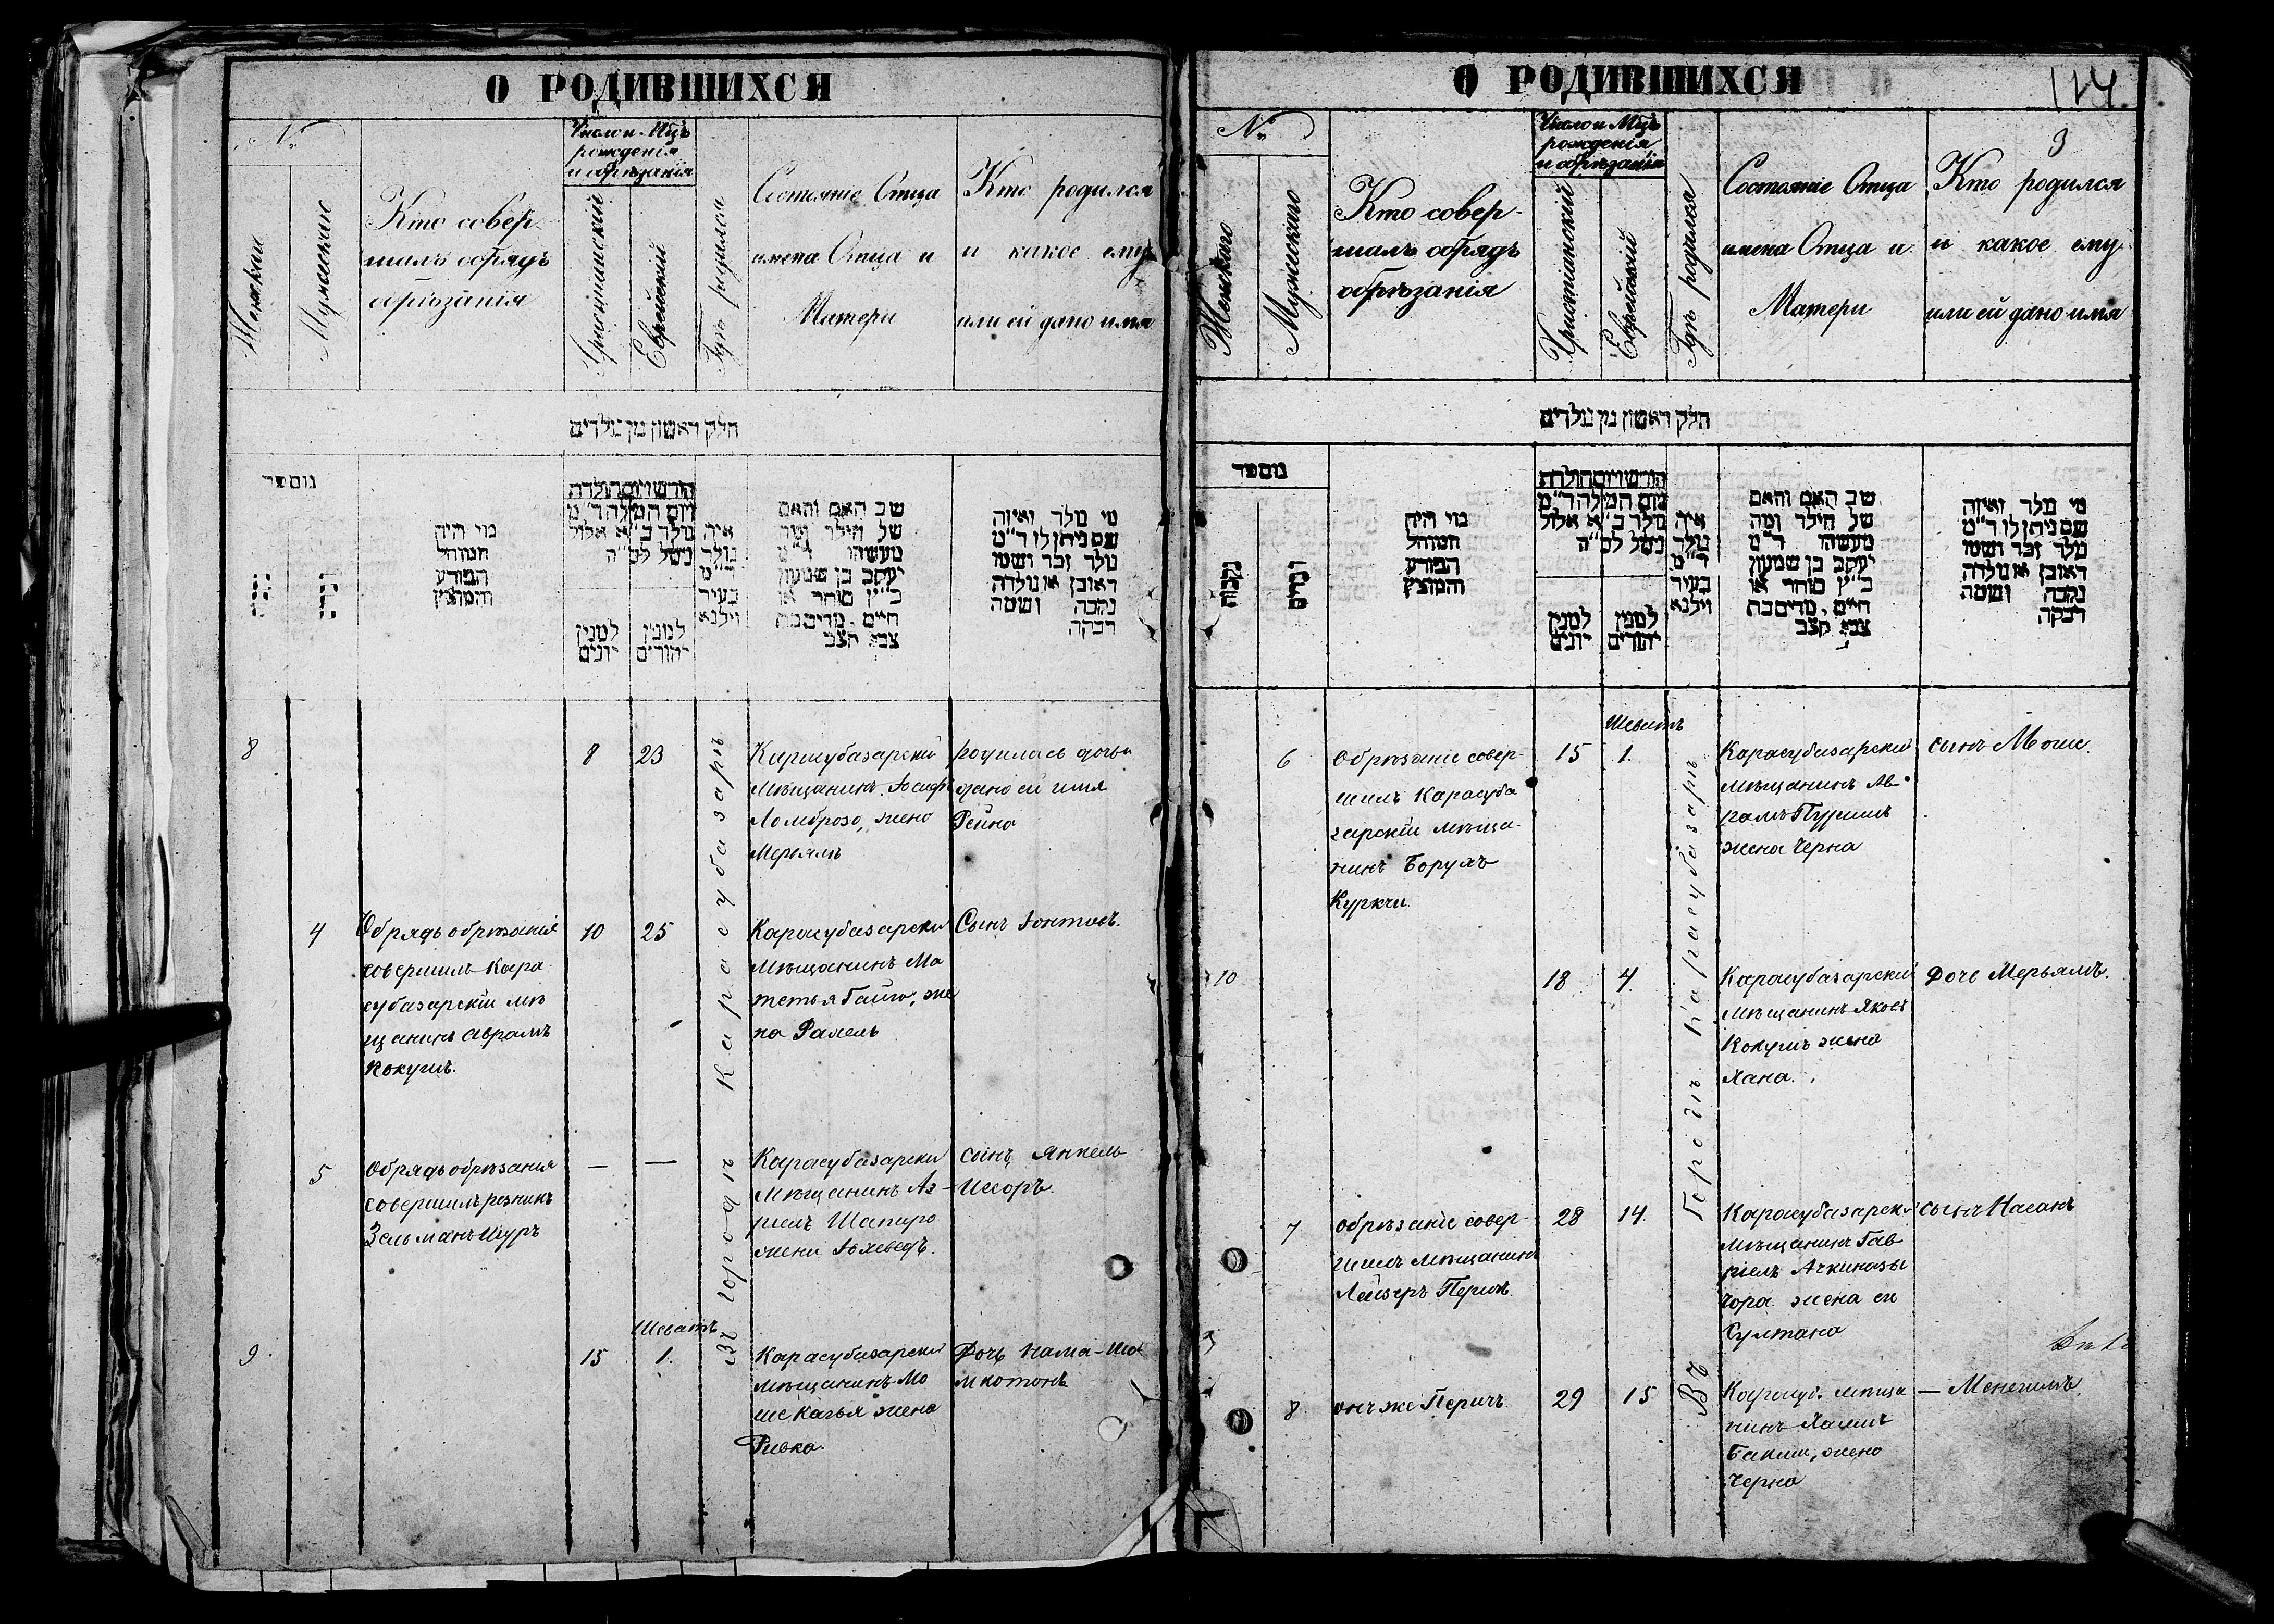 О РОДИВШИХСЯ
№
Женскаго
Мужескаго
Кто совер-
шалъ обрядъ
обрѣзанія
Число и Мцъ
рожденія
и обрѣзанія
Христіанскій
Еврейскій
Гдѣ родился
Состояніе Отца
имена Отца и
Матери
Кто родился
и какое ему
или ей дано имя
חלק ראשון מן נולדים
מספר
מי היה
המוהל
הפורע
והמוצץ
חודש ויום הולדה
ויום המילה ד״מ
נולד כ״א אלול
נימל לס״ה
למנין
יונים
למנין
יהודים
איה
נולד
ד״מ
בעיר
ווילנא
שב האם והאם
של הילד ומה
מעשהו ד״מ
יעקב בן שמעון
כ״ץ סוחר או
חיים . מרים בת
צבי קצב
מי נולד ואיזה
שם ניתן לו ד״מ
נולד זכר ושמו
ראובן או נולדה
נקבה ושמה
רבקה
8
8
23
Въ городѣ Карасубазарѣ
Карасубазарскій
мѣщанинъ Іосифъ
Ломброзо, жена
Мерьямъ
родилась дочь и
дано ей имя
Рейна
4
Обрядъ обрѣзанія
совершилъ Кара
субазарскій мѣ
щанинъ Аврамъ
Кокушъ.
10
25
Карасубазарскій
мѣщанинъ Ма
тетья Гайго, же
на Рахель
Сынъ Іонтовъ.
5
Обрядъ обрѣзанія
совершилъ резникъ
Зельманъ Шуръ
—
—
Карасубазарскій
мѣщанинъ Аз-
ріель Шапиро
жена Іохеведъ.
сынъ Янкель
Иссоръ.
9
15
Шеватъ
1.
Карасубазарскій
мѣщанинъ Мо
ше Кагья жена
Ривка.
Дочь Нама-Шо
мкотонъ
О РОДИВШИХСЯ
114.
3
№
Женскаго
Мужескаго
Кто совер-
шалъ обрядъ
обрѣзанія
Число и Мцъ
рожденія
и обрѣзанія
Христіанскій
Еврейскій
Гдѣ родился
Состояніе Отца
имена Отца и
Матери
Кто родился
и какое ему
или ей дано имя
חלק ראשון מן נולדים
מספר
נקבות
זכרים
מי היה
המוהל
הפורע
והמוצץ
חודש ויום הולדה
ויום המילה ד״מ
נולד כ״א אלול
נימל לס״ה
למנין
יונים
למנין
יהודים
איה
נולד
ד״מ
בעיר
ווילנא
שב האם והאם
של הילד ומה
מעשהו ד״מ
יעקב בן שמעון
כ״ץ סוחר או
חיים . מרים בת
צבי קצב
מי נולד ואיזה
שם ניתן לו ד״מ
נולד זכר ושמו
ראובן או נולדה
נקבה ושמה
רבקה
6
Обрѣзаніе совер-
шилъ Карасуба
зарскій мѣща-
нинъ Борухъ
Куркчи.
15
Шеватъ
1.
Въ Городѣ Карасубазарѣ
Карасубазарскій
мѣщанинъ Ав-
рамъ Пуримъ
жена Черна
сынъ Моше.
10
18
4
Карасубазарскій
мѣщанинъ Яковъ
Кокушъ жена
Хана.
Дочь Мерьямъ.
7
обрѣзаніе совер-
шилъ мѣщанинъ
Лейзеръ Перичъ.
28
14.
Карасубазарскій
мѣщанинъ Гав
ріелъ Ачкинозы
Чора жена ея
Султана
сынъ Насанъ
8
онъ же Перичъ.
29
15
Карасуб. мѣща
нинъ Хаимъ
Бакши, жена
Черна
— Менехимъ.